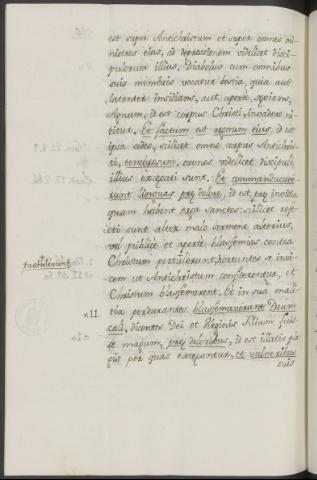 est super Antichristum et super omnes mi-
nistros eius, ad depressionem videlicet disci-
pulorum illius. Diabolus cum omnibus
suis membris vocatur bestia, quia aut
latenter insidians, aut aperte sæviens,
Agnum, id est corpus Christi, invadere ni-
titur. Et factum est regnum eius, id est
ipsa sedes, scilicet omne corpus Antichris-
ti, tenebrosum, omnes videlicet discipuli
illius excæcati sunt. Et commanducave-
runt linguas præ dolore, id est præ invidia
quam habent erga sanctos: scilicet refec-
ti sunt alter malo sermone alterius,
vel publice et aperte blasfemias contra
protulerunt
Christum pertulerunt, hortantes se invi-
cem ut Antichristum confiterentur, et
Christum blasfemarent. Et in sua mali-
v. 11. tia perdurantes blasfemaverunt Deum
cæli, dicentes Dei et Virginis Filium fuis-
se magum, præ doloribus, id est illatis pla-
gis per quas excæcantur, et vulneribus
suis